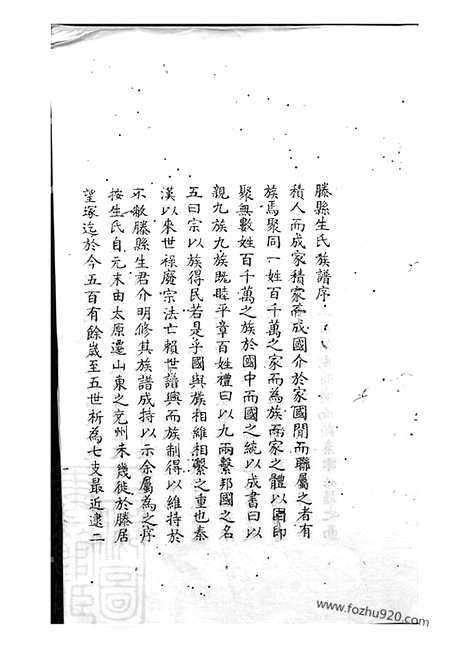 滕縣生氏族譜序
積人而成家積家而成國介於家國閒而聯屬之者有
族焉聚同一姓百千萬之家而為族而家之體以固即
聚無數姓百千萬之族於國中而國之統以成書曰以
親九族九族既睦平章百姓禮曰以九兩繫邦國之名
五曰宗以族得民若是乎國與族相維相繫之重也秦
漢以來世祿廢宗法亡賴世譜興而族制得以維持於
不敝滕縣生君介明修其族譜成持以示余屬為之序
按生氏自元末由太原遷山東之兗州未幾徙於滕居
望冢迄於今五百有餘歲至五世析為七支最近逮二
www.fozhu920.com